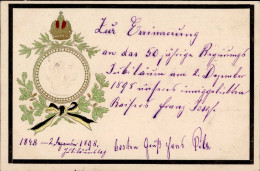 Zur Erinnerung
an das 50 jährige Regierungs
Jubiläum am 2. Dezember
1898 unseres innigstgeliebten
Kaisers Franz Josef.
1848 – 2. Dezember 1898.
besten Gruß Hans